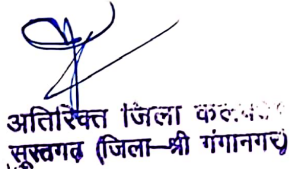 अतिरिक्त जिला
सूरतगढ़ (जिला–श्री गंगानगर)